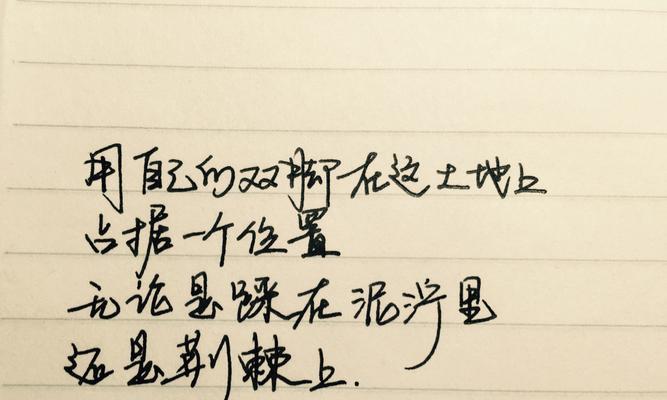 用自己的双脚在这土地上
占据一个位置
无论是踩在泥泞里
还是荆棘上.